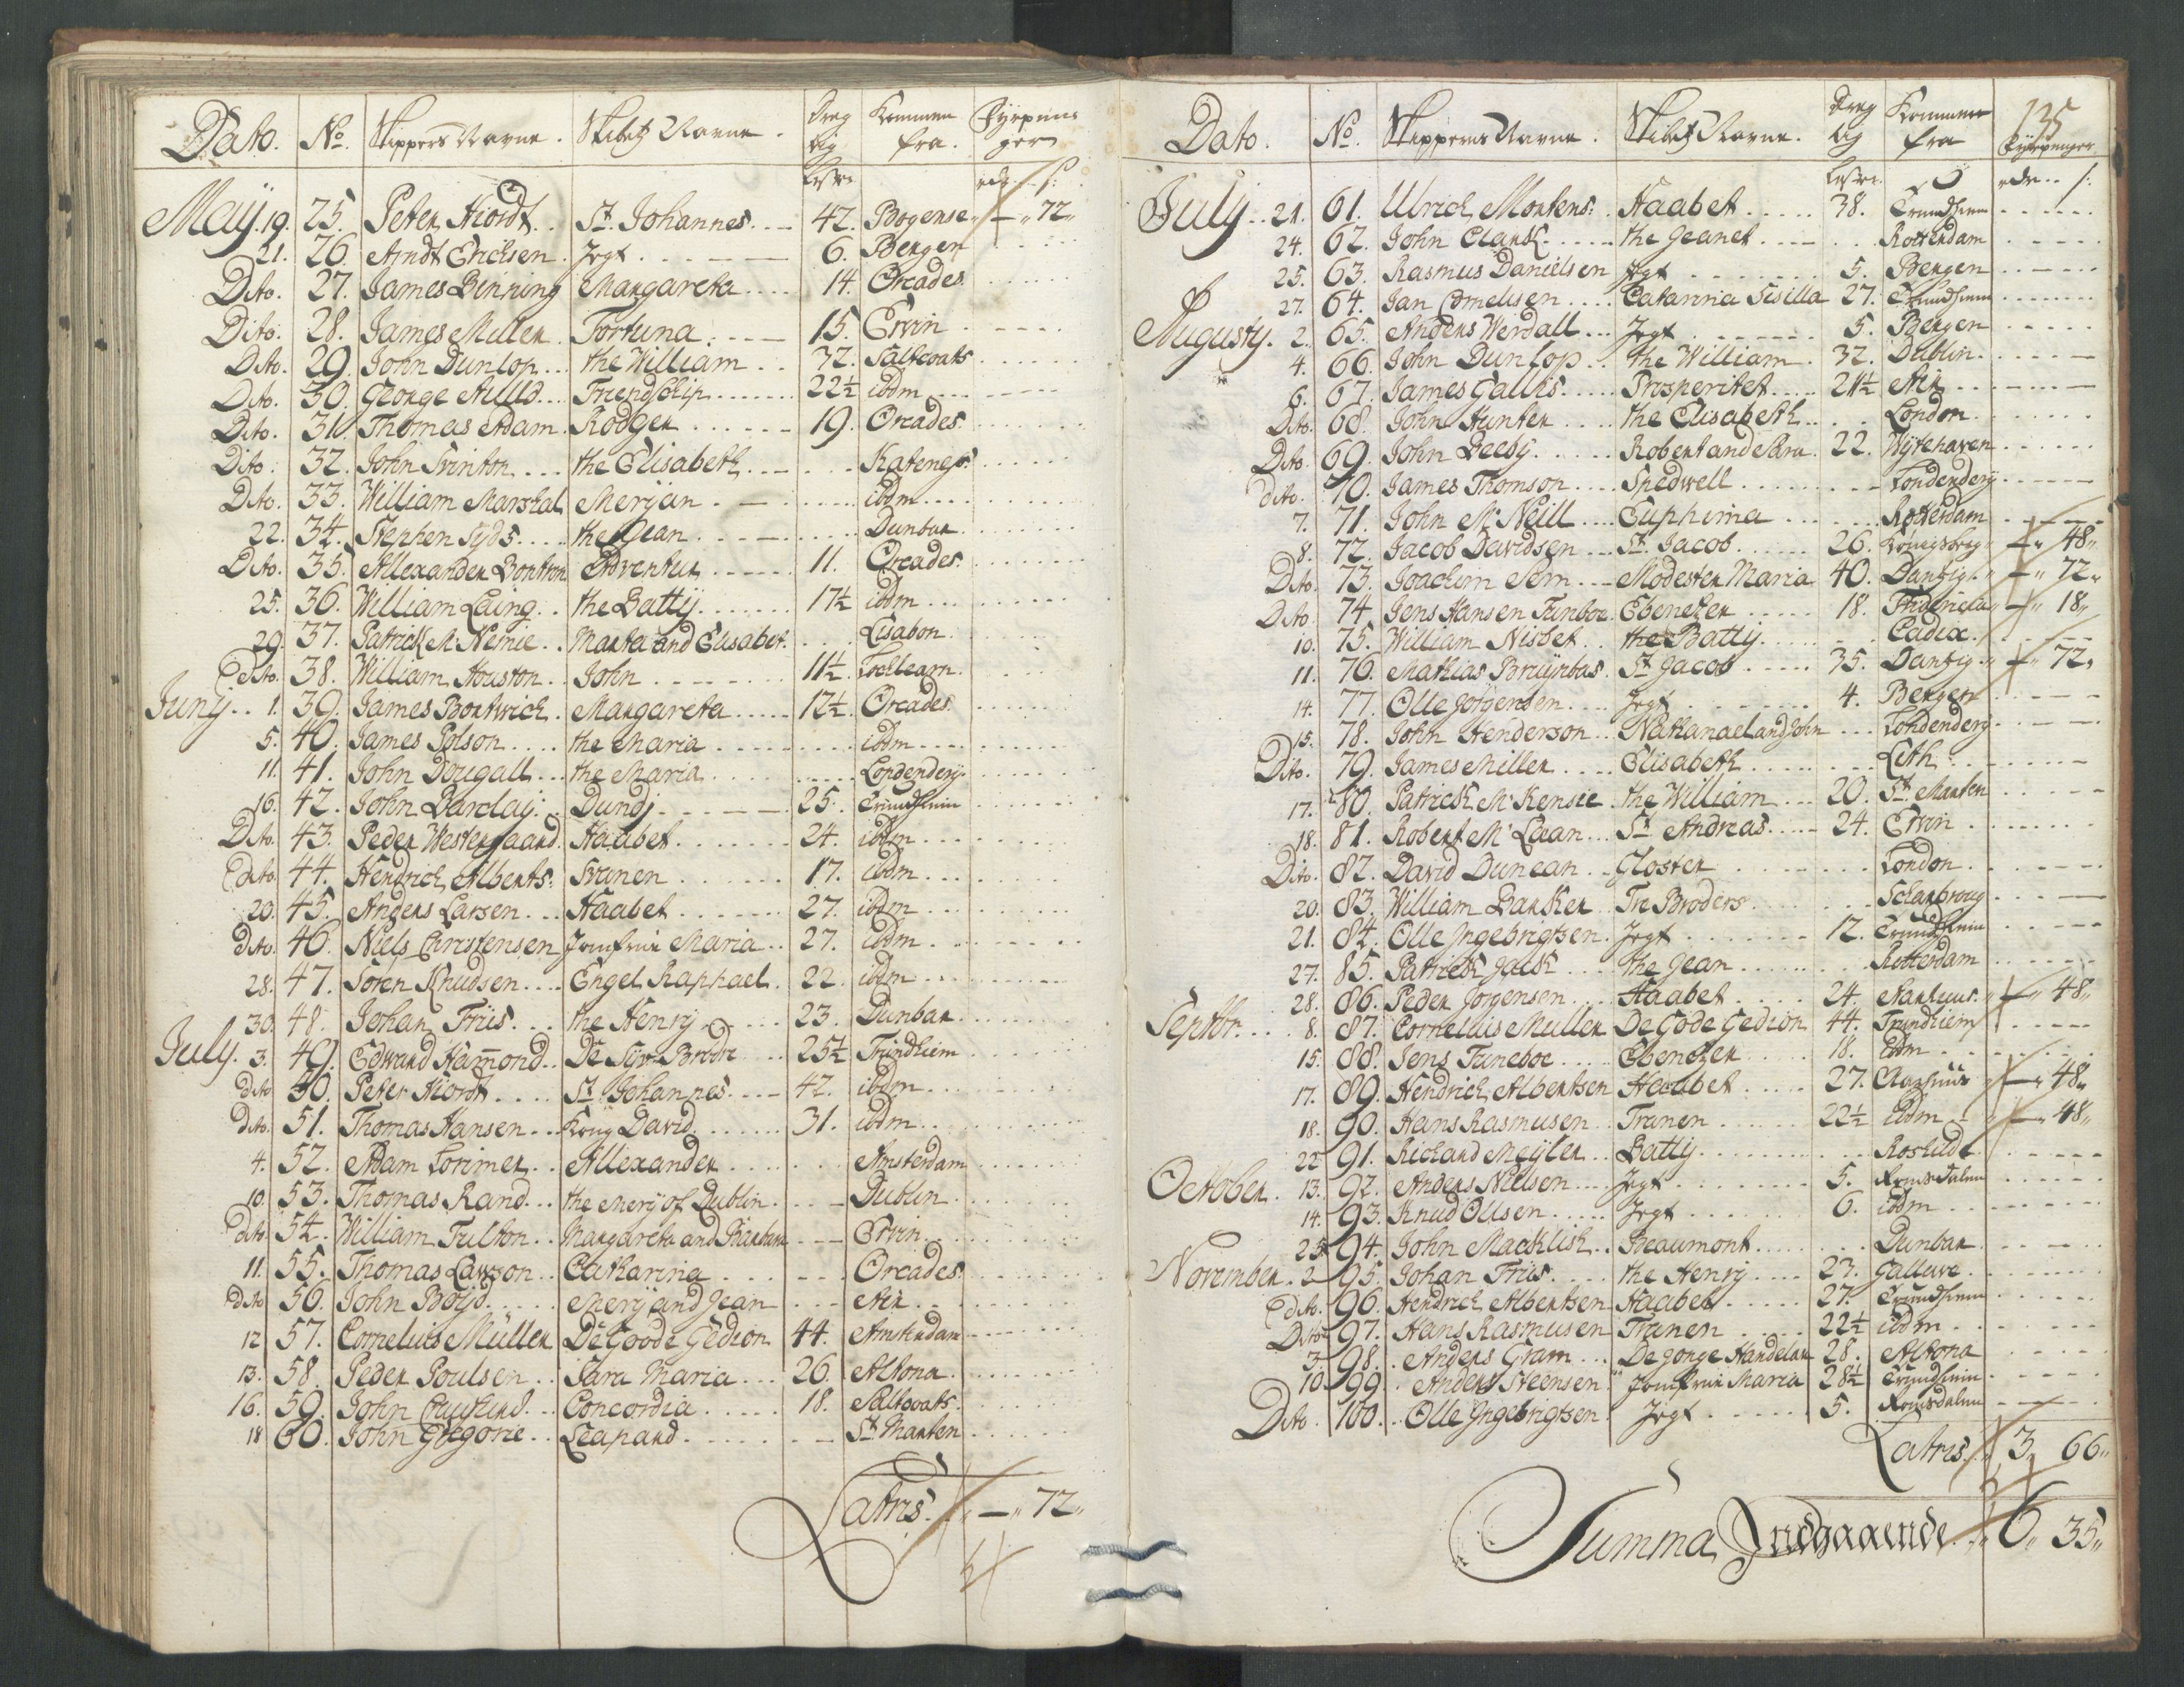 Dato. No. Skippers Navne. Skibetz Navne. Dreg tig Kommen fra. Fyrpenn ger
Lester rdr. s:
May. 19. 25. Peter Hiordt.. St. Johannes... 42. Bogense.. — 72.
21. 26. Arndt Erichsen. Jegt..... 6. Bergen
Dito. 27. James Binning Margareta.... 14. Orcades
Dito. 28. James Miller. Fortuna.... 15. Ervin
Dito. 29. John Dunlop... the William.. 32. Saltcoats
Dito. 30. George Auld... Friendschip.... 22½ ibdm
Dito. 31. Thomas Adam. Rodger..... 19. Orcades
Dito. 32. John Svinton... the Elisabeth.... Katenes.
Dito. 33. William Marshal Merjan..... ibdm
22. 34. Stephen Syds.... the Jean..... Dunbar
Dito. 35. Allexander Bontron Adventur..... 11. Orcades
25. 36. William Laing.. the Battij..... 17½ ibdm
29. 37. Patrick Mc Nemie.. Marta and Elisabet. Lisabon
Dito. 38. William Houston.. John..... 11½. Lochlearn.
Junij.. 1. 39. James Bontwick. Margareta.... 12½. Orcades
5. 40. James Polson.... the Maria..... ibdm
11. 41. John Dougall... the Maria..... Londenderij.
16. 42. John Barclaij.. Dundj..... 25. Trundhiem
Dito. 43. Peder Westergaard. Haabet..... 24. ibdm
Dito. 44. Hendrich Alberts: Svanen..... 17. ibdm
20. 45. Anders Larsen... Haabet..... 27. ibdm
Dito. 46. Niels Christensen Jomfrue Maria.. 27. ibdm
28. 47. Sören Knudsen.... Engel Raphael. 22. ibdm
30. 48. Johan Friis... the Henrij.... 23. Dunbar
July. 3. 49. Edward Hamond.. De Syv Brödre... 25½ Trundhiem
Dito 50. Peter Hiordt.... St. Johannes.... 42. ibdm
Dito. 51. Thomas Hansen... Konig David..... 31. ibdm
4. 52. Adam Lorimer.. Allexander..... Amsterdam
10. 53. Thomas Rand... the merij of Dublin.. Dublin
Dito 54. William Fulton.. Margareta and Barbara Ervin
11. 55. Thomas Lawson.. Catharina..... Orcades
Dito 56. John Boijd..... Merij and Jean... Air
12 57. Cornelius Müller De Goode Gedion 44. Amsterdam
13. 58. Peder Poulsen.. Sara Maria... 26. Altona
16. 59. John ... Concordia..... 18. Saltcoats.
18 60. John Gregorie.. Leapard..... St. Marten
Latris. — 72.
135
Dato. No. Skippernes Navne. Skibetz Navne. Dreg tig Kommen fra Fyrpenger
Lester. rdr.. s:
July.. 21. 61. Ulrich Mortens: Haabet..... 38. Trundhiem
24. 62. John Clark..... the Jeanet..... Rotterdam
25. 63. Rasmus Danielsen Jegt..... 5. Bergen
27. 64. Jan Cornelisen.... Catarina Sisilla 27. Trundhiem
Augusty. 2. 65. Anders Werdall... Jegt..... 5. Bergen
4. 66. John Dunlop.. the William. 32. Dublin.
6. 67. James Gallis..... Prosperitet.... 21½ Air
Dito. 68. John Hunter.... the Elisabeth.. London.
Dito. 69. John Beeby..... Robert and Sara. 22. Wytehaven
Dito. 70. James Thomson.... Spedwell..... Londenderij
7. 71. John Mc Neill.... Euphima..... Rotterdam
8. 72. Jacob Davidsen... St. Jacob..... 26. Königsberg — 48.
Dito. 73. Joachim Sem... Modester Maria 40. Dantzig.. — 72.
Dito. 74. Jens Hansen Tunboe. Ebenetzer..... 18. Fridericia — 18.
10. 75. William Nisbet.. the Battij..... Cadix
11. 76. Mathias Bruijnbas. St Jacob..... 35. Dantzig.. — 72.
14. 77. Olle Jörgensen.... Jegt..... 4. Bergen
15. 78. John Henderson.. Nathanael and John Londenderij
Dito. 79. James Miller.... Elisabeth..... Lith
17. 80. Patrick Mc Kensie. the William... 20. St. Marten
18. 81. Robert Mc Laan... St. Andreas..... 24. Ervin
Dito. 82. David Duncan.. Gloster..... London
20. 83. William Banker.. Tre Broders.....
21. 84. Olle Jngebrigtsen. Jegt..... 12. Trundhiem
27. 85. Patrick Jack.... the Jean..... Rotterdam
28. 86. Peder Jorgensen.... Haabet..... 24. Aarhuus.. — 48.
Septbr... 8. 87. Cornellius Muller De Gode Gedion 44. Trundhiem
15. 88. Jens Tuneboe.... Ebenezer..... 18. ibdm
17. 89. Hendrich Albertsen Haabet.... 27. Aarhuus — 48.
18. 90. Hans Rasmusen.. Tranen..... 22½ ibdm — 48.
22 91. Richard Meyler.. Battij..... Roshild
October. 13. 92. Anders Nielsen.... Jegt..... 5. Romsdalen
14. 93. Knud Ollsen..... Jegt..... 6. ibdm
25 94. John Macklish.. Beaumont..... Dunbar
November. 2 95. Johan Friis..... the Henrij.... 23. Gallewe
Dito. 96. Hendrich Albertsen Haabet..... 27. Trundhiem
Dito 97. Hans Rasmusen Tranen..... 22½ ibdm
3. 98. Anders Gram... De gonge Handelar 28. Altona
10 99. Anders Steensen Jomfrue Maria 28½ Trundhiem
Dito. 100. Olle Yngebrigtsen. Jegt..... 5. Romsdalen
Latris. 3. 66.
Summa Indgaaende. 6. 35.